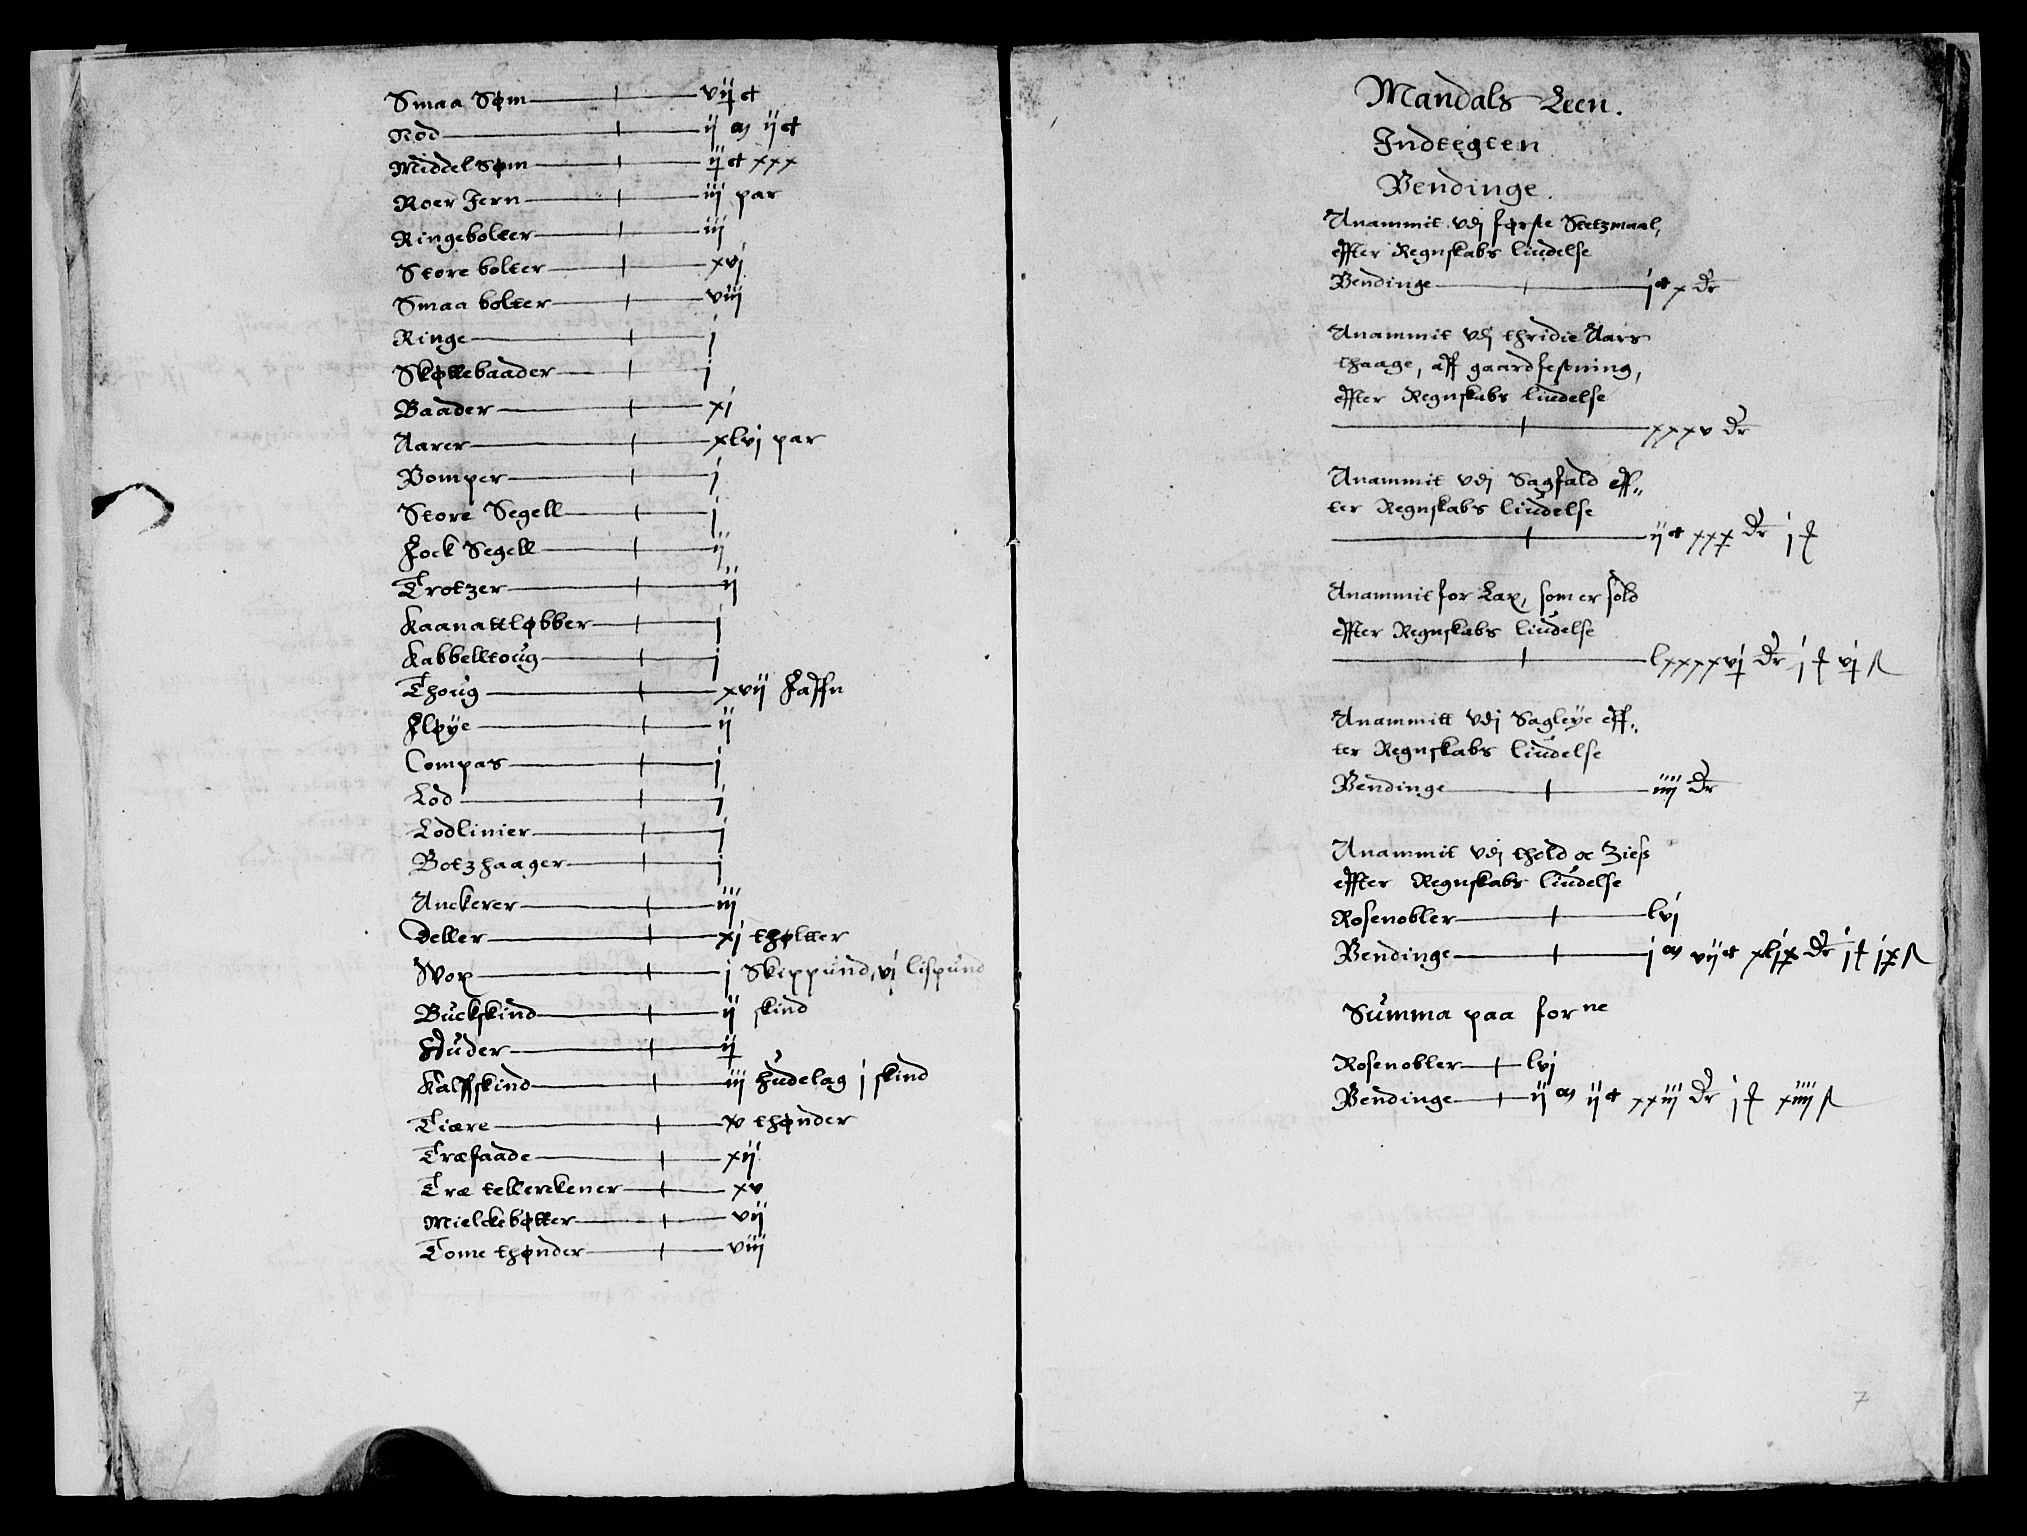 Smaa Søm vijct
Nød ij m ijct
Middel Søm ijct xxx
Roer Jern iij par
Ringebolter iij
Store bolter xvj
Smaa bolter viij
Ringe j
Skøttebaader j
Baader xi
Aarer xlvj par
Pomper j
Store Segell j
Fock Segell ij
Trotzer ij
Kaanattløbber j
Kabbelltoug j
Thoug xvij Faffn
Fløye ij
Compas j
Lod j
Lodlinier j
Botzhaager j
Anckerer iij
Deller xj thøltter
Vox j Skippund, vj lispund
Buckskind ij skind
Huder ij
Kalffskind iij Hudelag j skind
Tiære x thønder
Træfaade xij
Træ tellerckener xv
Mielckebøtter vij
Tome thønder viij
Mandals Leen.
Indtegten
Pendinge.
Anammit vdj første Stetzmaal,
effter Regnskabs liudelse
Pendinge jct x Dr
Anammit vdj thridie Aars
thaage, aff gaardfestning,
effter Regnskabs liudelse
xxxv Dr
Anammit vdj Sagfald eff„
ter Regnskabs liudelse
ijct xxx Dr j ƭ
Anammit for Lax, som er sold
effter Regnskabs liudelse
lxxxxvj Dr j ƭ vj ß
Anammitt vdj Sagleye eff„
ter Regnskabs liudelse
Pendinge iiij Dr
Anammit vdj thold oc Zieß
effter Regnskabs liudelse
Rosenobler lvj
Pendinge j m vijct xljx Dr j ƭ jx ß
Summa paa forne
Rosenobler lvj
Pendinge ij m ijct xxiij Dr j ƭ xiiij ß
7